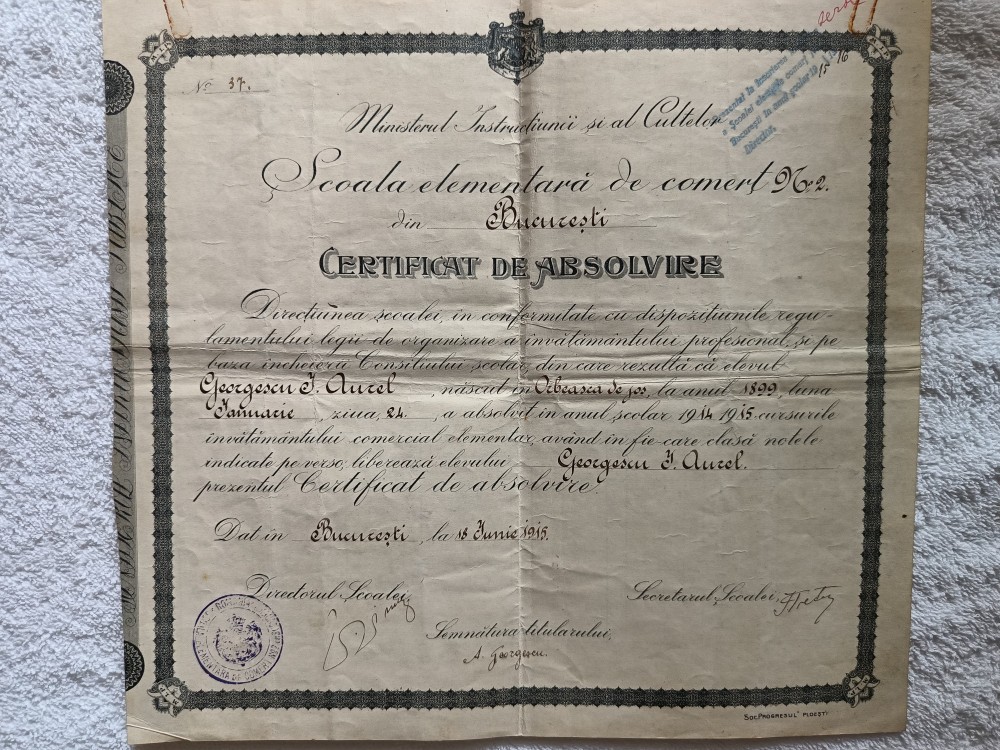 No 37.
15 16
prezentul la înscriere
a Școalei elem de comerț
București în anul școlar 19
Director,
Ministerul Instrucțiunii și al Cultelor
Școala elementară de comerț No 2.
din București
CERTIFICAT DE ABSOLVIRE
Direcțiunea școalei, în conformitate cu dispozițiunile regu-
lamentului legii de organizare a învățământului profesional, și pe
baza încheierii Consiliului școlar, din care rezultă că elevul
Georgescu I. Aurel, născut în Orbeasca de jos, la anul 1899, luna
Ianuarie, ziua 24., a absolvit în anul școlar 1914 1915 cursurile
învățământului comercial elementar, având în fie-care clasă notele
indicate pe verso, liberează elevului Georgescu I. Aurel.
prezentul Certificat de absolvire.
Dat în București, la 18 Iunie 1915.
Directorul Școalei,
Secretarul Școalei,
Semnătura titularului,
A. Georgescu.
SOC. "PROGRESUL" PLOEȘTI